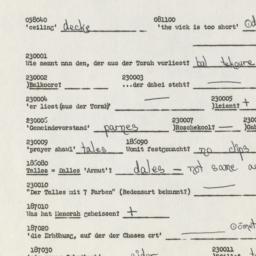 058040 081100
'ceiling' decke 'the wick is too short'
230001
Wie nennt man den, der aus der Torah vorliest? bal tekoure
230002 230003
)Balkoore? ...der dabei steht?
230004 230005
'er liest (aus der Torah) )leient? +
230006 230007 230008
'Gemeindevorstand' parnes )Roschekool? — )Gan
230009 186090
'prayer shawl' tales Womit festgemacht? no clips
186080
Talles = Dalles 'Armut'? dales = not same as
230010
"Der Talles mit 7 Farben" (Redensart bekannt?)
187010
Was hat Menorah geheissen? +
187020
'die Erhöhung, auf der der Chasen ort'
187030 230011